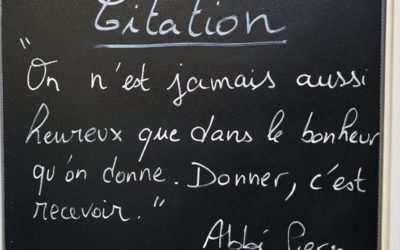 Citation
"On n'est jamais aussi
heureux que dans le bonheur
qu'on donne. Donner, c'est
recevoir."
Abbé